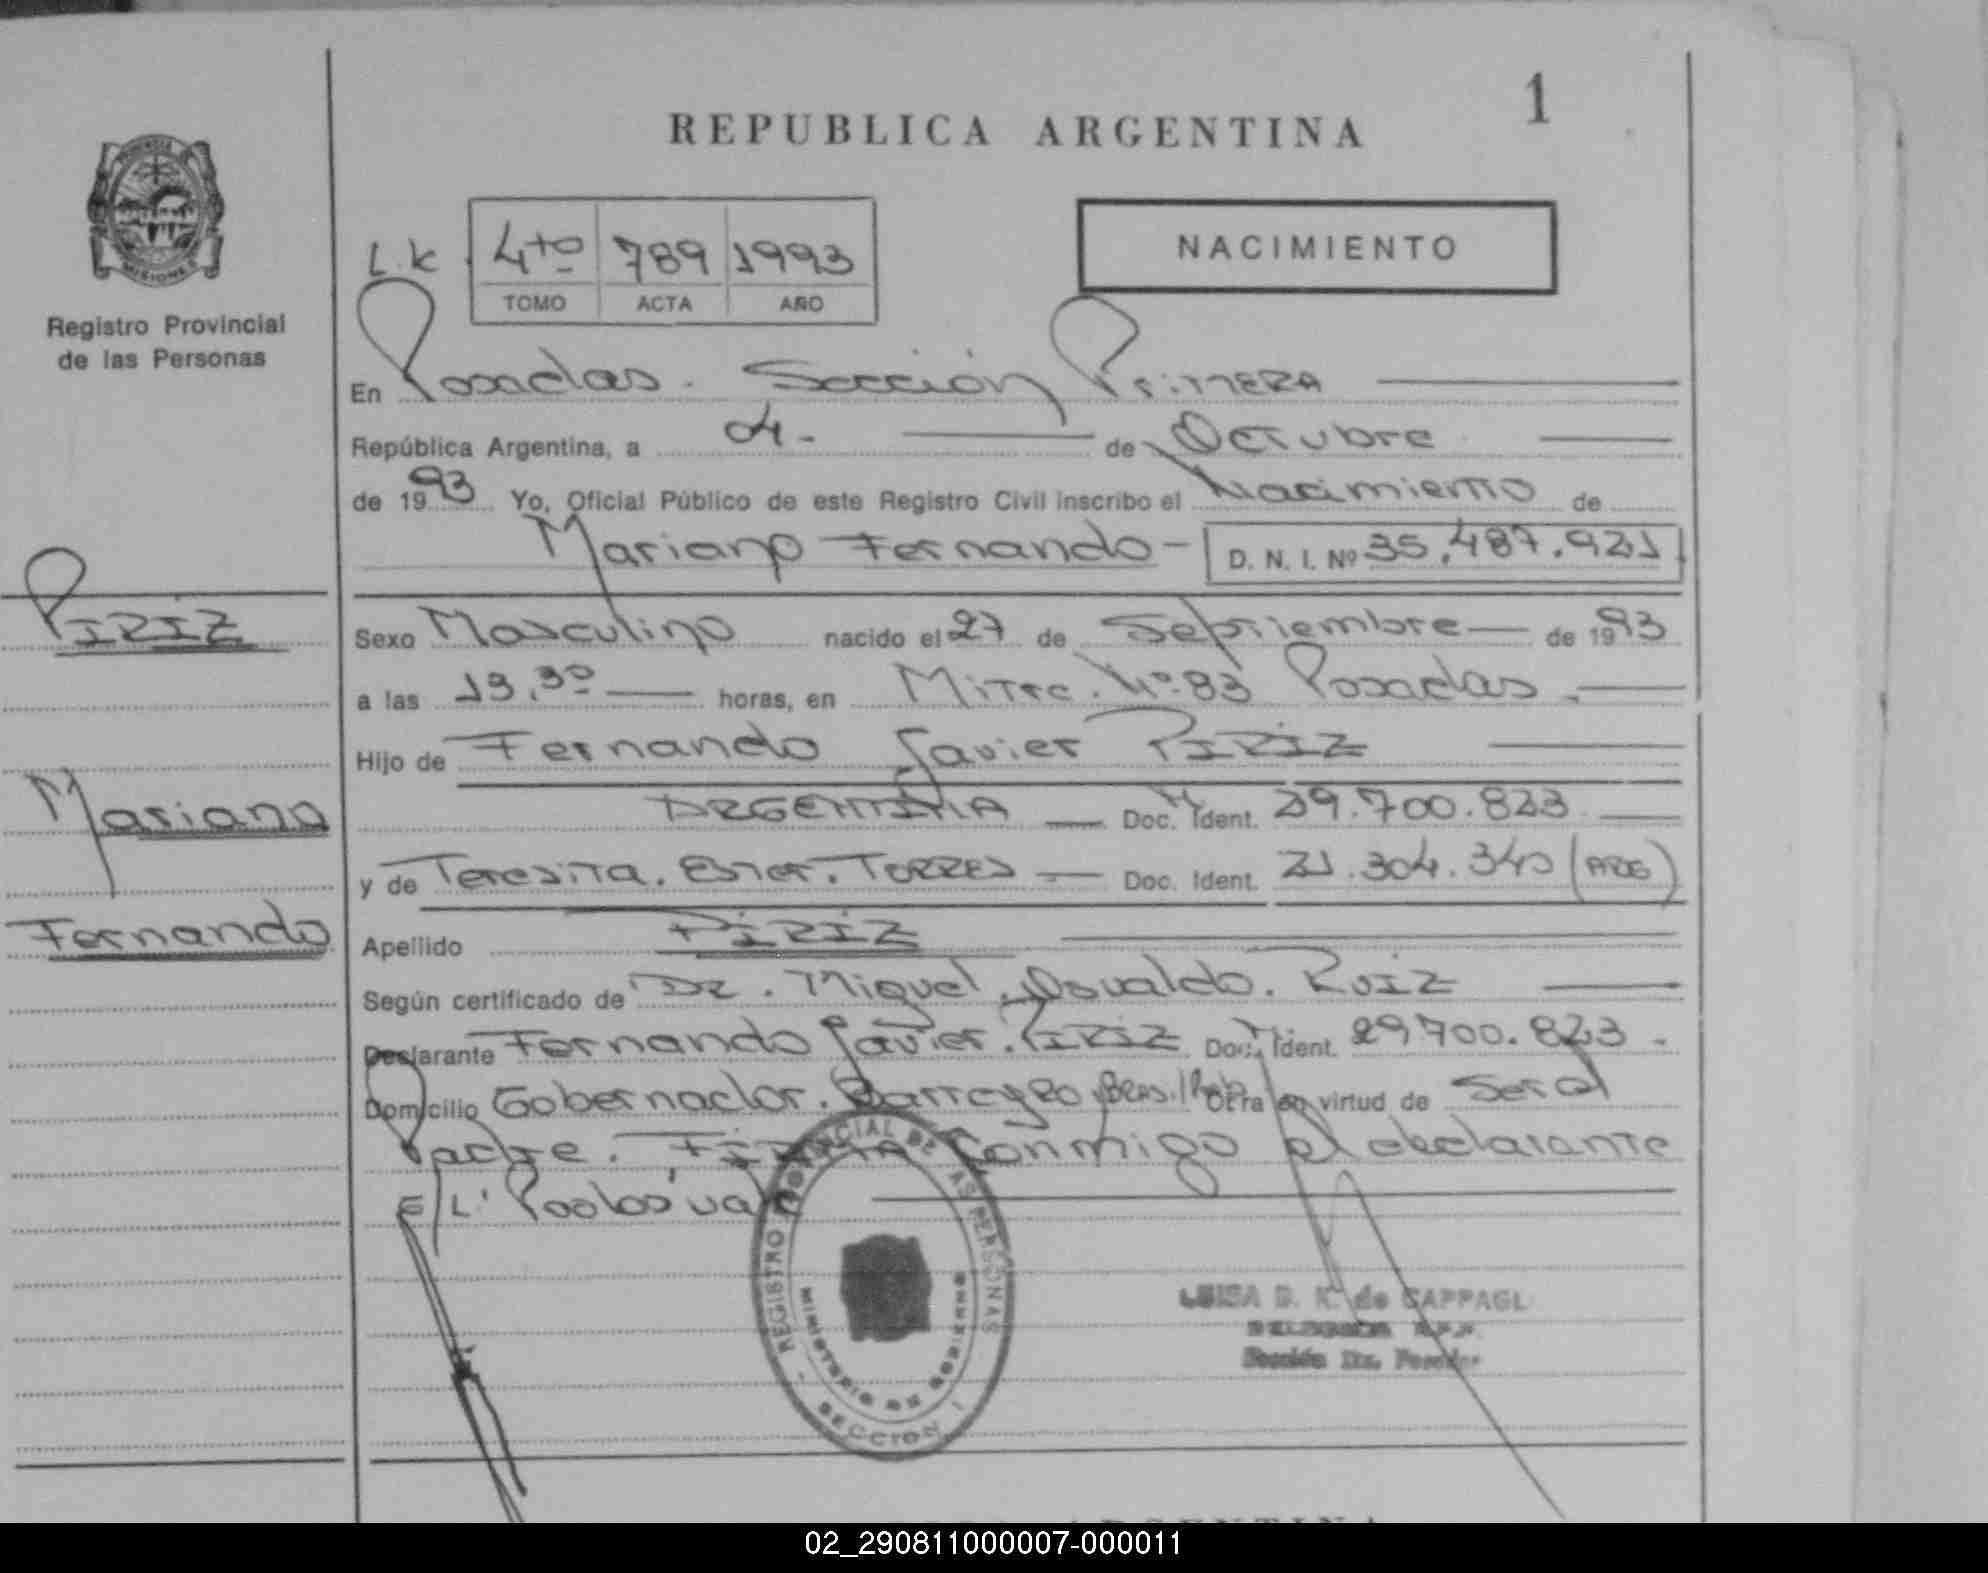 REPUBLICA ARGENTINA
1
PROVINCIA
MISIONES
Registro Provincial
de las Personas
L.K. 4to 789 1993
TOMO ACTA AÑO
NACIMIENTO
En Posadas. Sección Primera
República Argentina, a 01. de Octubre
de 1993 Yo, Oficial Público de este Registro Civil inscribo el Nacimiento de
Mariano Fernando - D. N. I. Nº 35.487.921
PIRIZ
Sexo Masculino nacido el 27 de Septiembre de 1993
a las 13,30 horas, en Mitre. Nº 83 Posadas.
Hijo de Fernando Javier PIRIZ
Mariano
ARGENTINA Doc. Ident. 29.700.823
y de Teresita. Ester. TORRES Doc. Ident. 21.304.340 (ARG)
Fernando
Apellido PIRIZ
Según certificado de Dr. Miguel Osvaldo. Ruiz
Declarante Fernando Javier. PIRIZ Doc. Ident. 29700.823.
Domicilio Gobernador. Barreyro Obra en virtud de Ser el
Padre. FIRMA Conmigo el declarante
E/L' vale
REGISTRO PROVINCIAL DE LAS PERSONAS
MINISTERIO DE GOBIERNO
SECCION I
LUISA B. K. de CAPPAGLI
DELEGADA R.P.P.
Sección 1ra. Posadas
ARGENTINA
02_290811000007-000011